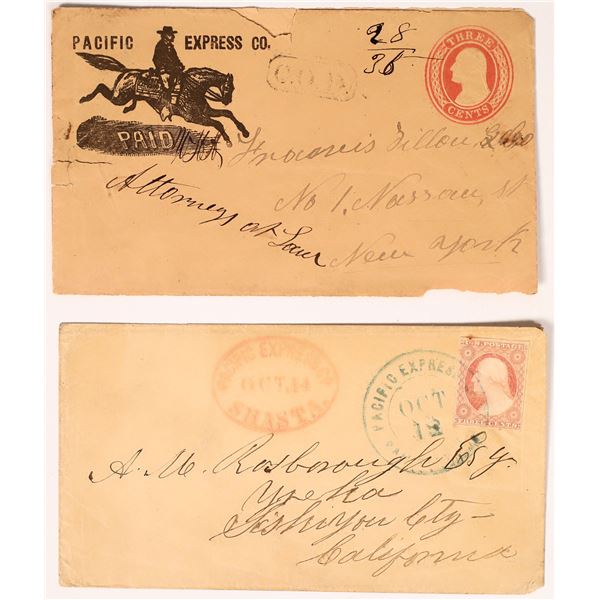 PACIFIC EXPRESS CO.
C.O.D.
28
36
THREE
CENTS
PAID
Francis Dillon
Attorney at Law
No 1. Nassau St
New York
PACIFIC EXPRESS CO.
OCT. 14
SHASTA.
PACIFIC EXPRESS
OCT
12
U.S. POSTAGE
THREE CENTS
A. M. Rosborough Esq.
Yreka
Siskiyou Cty
California